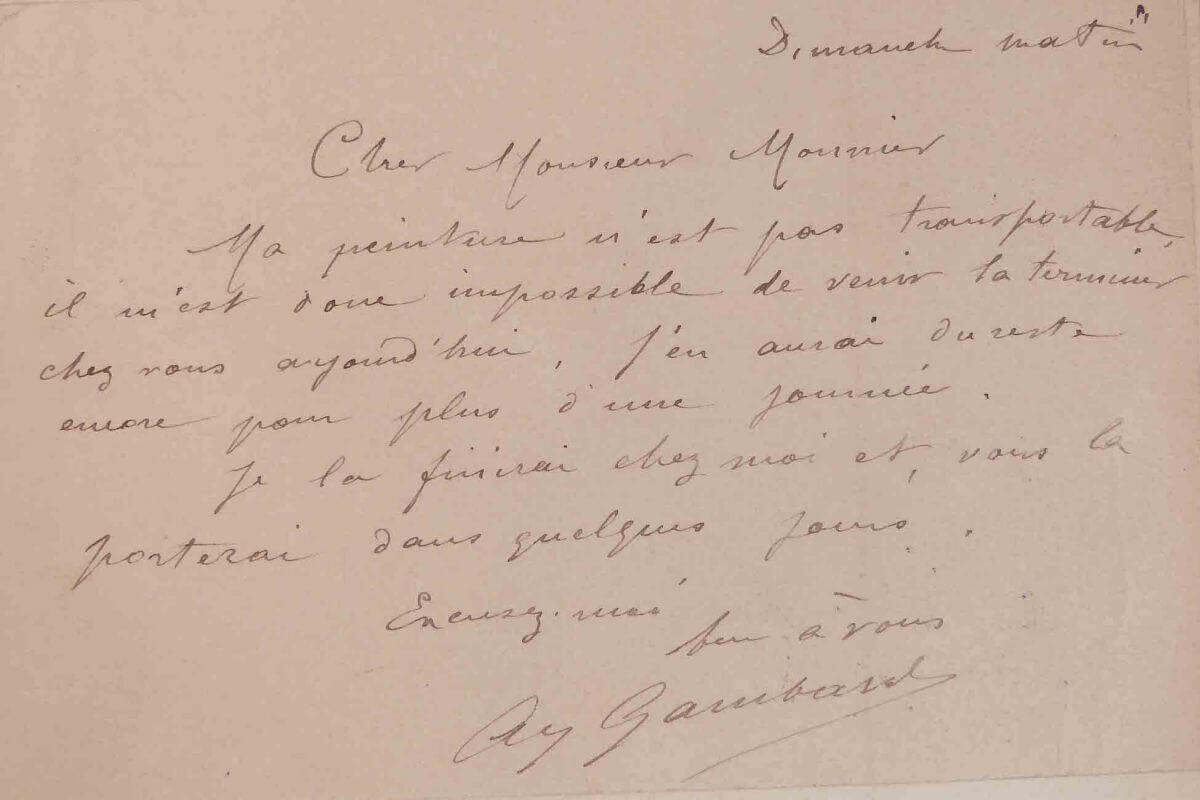 Dimanche matin
Cher Monsieur Monnier
Ma peinture n'est pas transportable,
il m'est donc impossible de venir la terminer
chez vous aujourd'hui. J'en aurai du reste
encore pour plus d'une journée.
Je la finirai chez moi et vous la
porterai dans quelques jours.
Excusez-moi
bien à vous
Aug Gambard